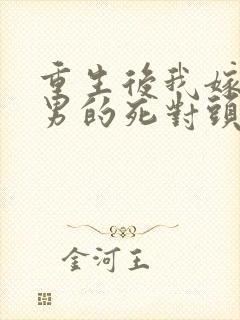 重生後我嫁
男的死對頭
金河王